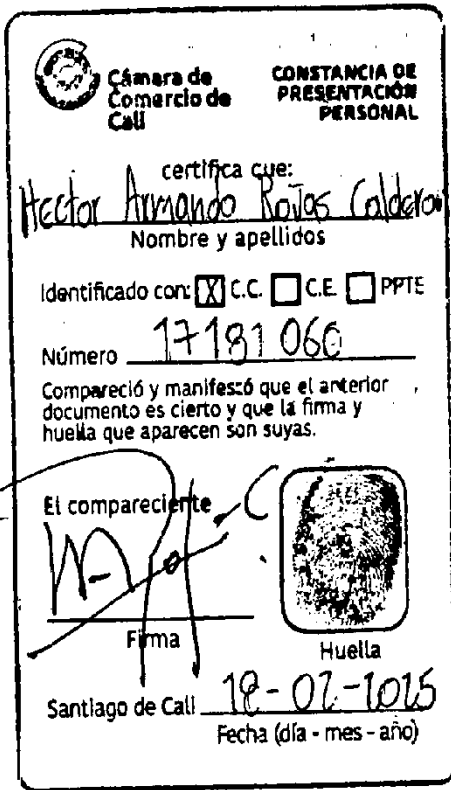 Cámara de
Comercio de
Cali
CONSTANCIA DE
PRESENTACIÓN
PERSONAL
certifica que:
Hector Armando Rojas Calderon
Nombre y apellidos
Identificado con: [X] C.C. [ ] C.E. [ ] PPTE
Número 17181060
Compareció y manifestó que el anterior
documento es cierto y que la firma y
huella que aparecen son suyas.
El compareciente
Firma
Huella
Santiago de Cali 18-02-2025
Fecha (día - mes - año)